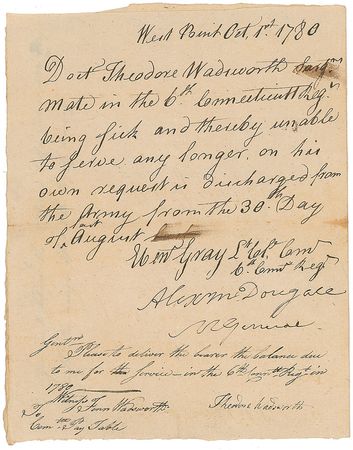 West Point Oct. 1st 1780
Doct Theodore Wadsworth Surgns
Mate in the 6th Connecticut Regt
being sick and thereby unable
to serve any longer, on his
own request is discharged from
the Army from the 30th Day
of last August
Ebenr Gray Lt Colo Comt
6th Connt Regt
Alexr McDougall
M General
Gentn
Please to deliver the bearer the balance due
to me for service in the 6th Connt Regt in
1780
Witness
To Jonn Wadsworth Theodore Wadsworth
Comtee Pay Table